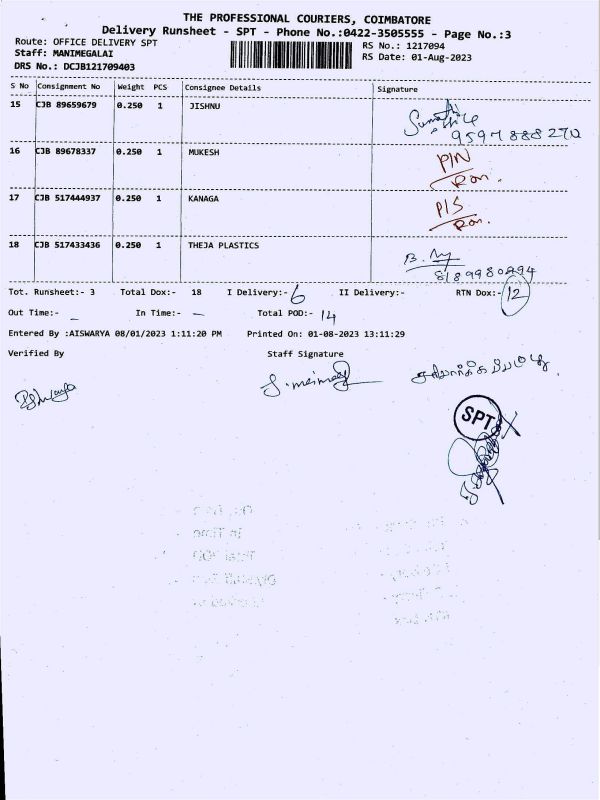 THE PROFESSIONAL COURIERS, COIMBATORE
Delivery Runsheet - SPT - Phone No.:0422-3505555 - Page No.:3
Route: OFFICE DELIVERY SPT
RS No.: 1217094
Staff: MANIMEGALAI
RS Date: 01-Aug-2023
DRS No.: DCJB121709403
S No Consignment No Weight PCS Consignee Details Signature
15 CJB 89659679 0.250 1 JISHNU
9597888270
16 CJB 89678337 0.250 1 MUKESH P/N
17 CJB 517444937 0.250 1 KANAGA P/S
18 CJB 517433436 0.250 1 THEJA PLASTICS
8189980494
Tot. Runsheet:- 3 Total Dox:- 18 I Delivery:- 6 II Delivery:- RTN Dox:- 12
Out Time:- - In Time:- - Total POD:- 14
Entered By :AISWARYA 08/01/2023 1:11:20 PM Printed On: 01-08-2023 13:11:29
Verified By Staff Signature
சரிபார்க்கப்பட்டது
SPT